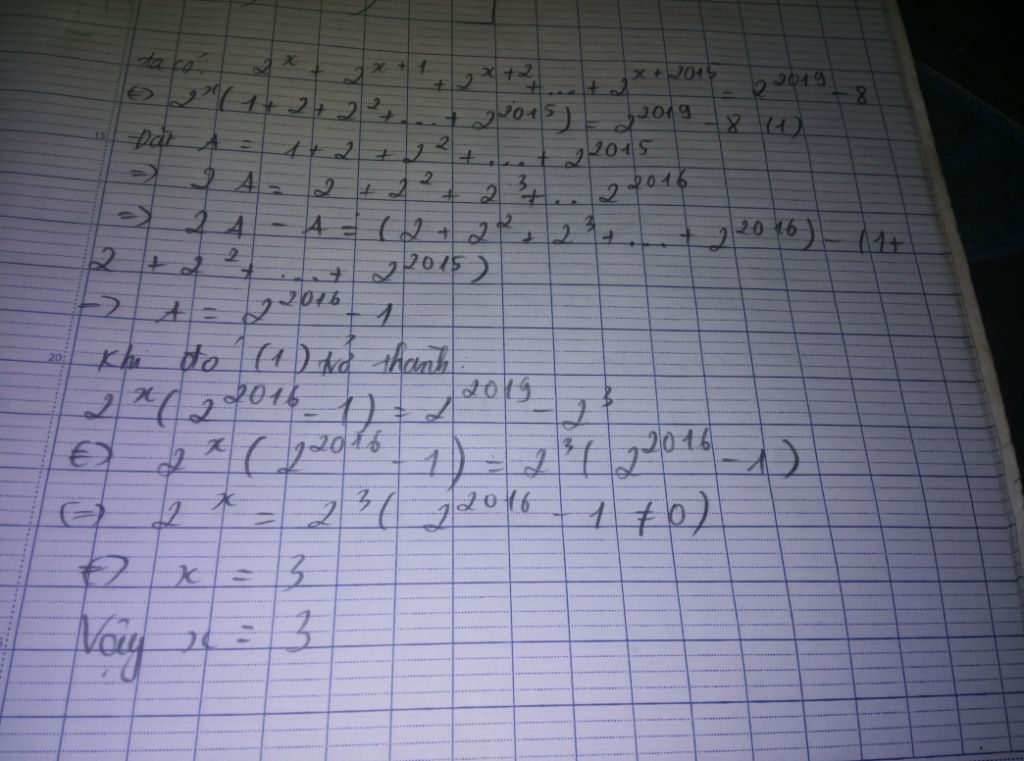 ta có: 2^x + 2^{x+1} + 2^{x+2} + ... + 2^{x+2015} = 2^{2019} - 8
<=> 2^x (1 + 2 + 2^2 + ... + 2^{2015}) = 2^{2019} - 8 (1)
15
Đặt A = 1 + 2 + 2^2 + ... + 2^{2015}
=> 2A = 2 + 2^2 + 2^3 + .. 2^{2016}
=> 2A - A = (2 + 2^2 + 2^3 + ... + 2^{2016}) - (1 +
2 + 2^2 + ... + 2^{2015})
-> A = 2^{2016} - 1
20
Khi đó (1) trở thành:
2^x (2^{2016} - 1) = 2^{2019} - 2^3
<=> 2^x (2^{2016} - 1) = 2^3 (2^{2016} - 1)
<=> 2^x = 2^3 (2^{2016} - 1 ≠ 0)
<=> x = 3
Vậy x = 3